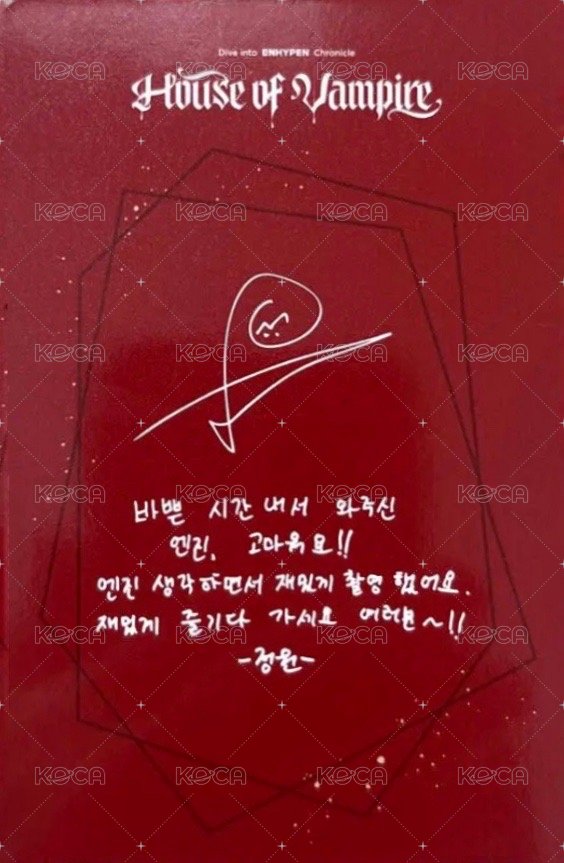 Dive into ENHYPEN Chronicle
House of Vampire
바쁜 시간 내서 와주신
엔진, 고마워요!!
엔진 생각하면서 재밌게 촬영 했어요.
재밌게 즐기다 가세요 여러분~!!
-정원-
KOCA